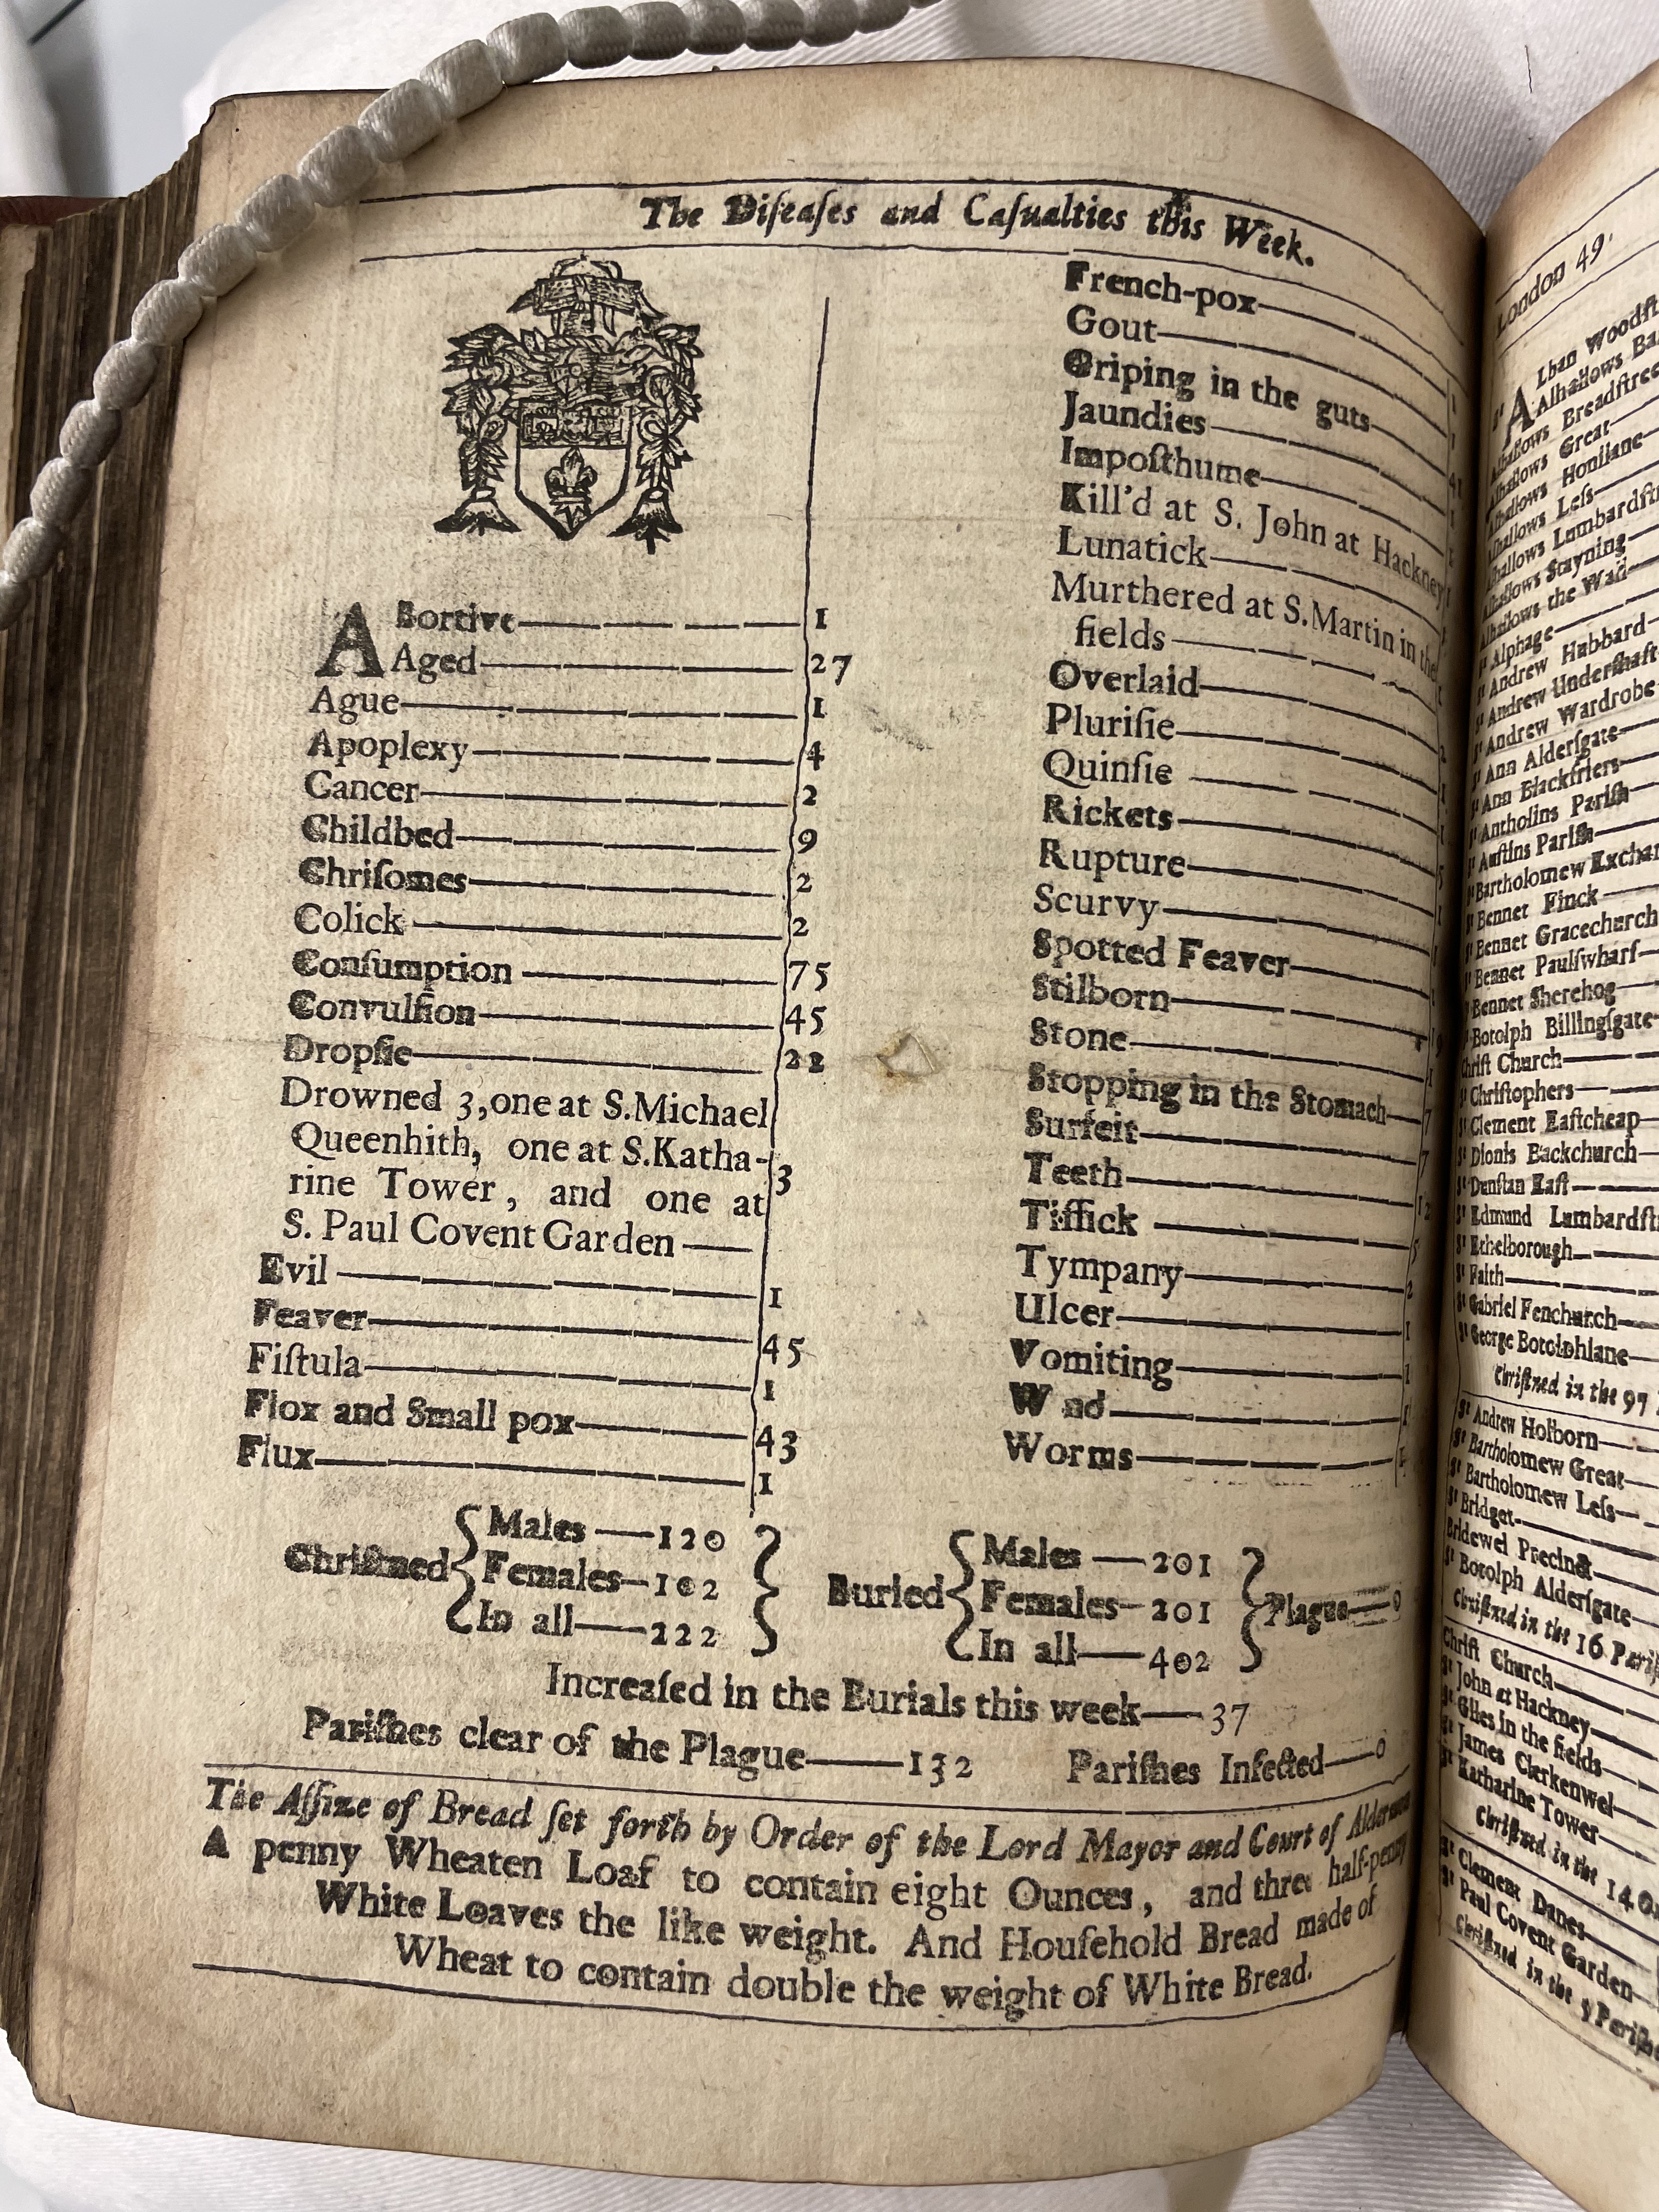 The Diſeaſes and Caſualties this Week.
ABortive 1
Aged 27
Ague 1
Apoplexy 4
Cancer 2
Childbed 9
Chriſomes 2
Colick 2
Conſumption 75
Convulſion 45
Dropſie 22
Drowned 3, one at S. Michael
Queenhith, one at S. Katha-
rine Tower, and one at
S. Paul Covent Garden 3
Evil 1
Feaver 45
Fiſtula 1
Flox and Small pox 43
Flux 1
French-pox
Gout 1
Griping in the guts 41
Jaundies
Impoſthume
Kill'd at S. John at Hackney
Lunatick
Murthered at S. Martin in the
fields 1
Overlaid 2
Pluriſie 1
Quinſie 1
Rickets 5
Rupture 1
Scurvy 1
Spotted Feaver 1
Stilborn
Stone 1
Stopping in the Stomach 7
Surfeit 7
Teeth 12
Tiſſick 5
Tympany 2
Ulcer 1
Vomiting 1
W nd 1
Worms
Chriſtned
Males 120
Females 102
In all 222
Buried
Males 201
Females 201
In all 402
Plague 0
Increaſed in the Burials this week 37
Pariſhes clear of the Plague 132 Pariſhes Infected 0
The Aſſize of Bread ſet forth by Order of the Lord Mayor and Court of Aldermen
A penny Wheaten Loaf to contain eight Ounces, and three half-penny
White Loaves the like weight. And Houſehold Bread made of
Wheat to contain double the weight of White Bread.
London 49.
Sᵗ ALban Woodſt
Alhallows Ba
Alhallows Breadſtree
Alhallows Great
Alhallows Honilane
Alhallows Leſs
Alhallows Lumbardſtr
Alhallows Stayning
Alhallows the Wall
Sᵗ Alphage
Sᵗ Andrew Hubbard
Sᵗ Andrew Underſhaft
Sᵗ Andrew Wardrobe
Sᵗ Ann Alderſgate
Sᵗ Ann Blackfriers
Sᵗ Antholins Pariſh
Sᵗ Auſtins Pariſh
Sᵗ Bartholomew Exchan
Sᵗ Bennet Finck
Sᵗ Bennet Gracechurch
Sᵗ Bennet Paulſwharf
Sᵗ Bennet Sherehog
Sᵗ Botolph Billingſgate
Chriſt Church
Sᵗ Chriſtophers
Sᵗ Clement Eaſtcheap
Sᵗ Dionis Backchurch
Sᵗ Dunſtan Eaſt
Sᵗ Edmund Lumbardſtr
Sᵗ Ethelborough
Sᵗ Faith
Sᵗ Gabriel Fenchurch
Sᵗ George Botolphlane
Chriſtned in the 97
Sᵗ Andrew Holborn
Sᵗ Bartholomew Great
Sᵗ Bartholomew Leſs
Sᵗ Bridget
Bridewel Precinct
Sᵗ Botolph Alderſgate
Chriſtned in the 16 Pariſ
Chriſt Church
Sᵗ John at Hackney
Sᵗ Giles in the fields
Sᵗ James Clerkenwel
Sᵗ Katharine Tower
Chriſtned in the 14 O
Sᵗ Clement Danes
Sᵗ Paul Covent Garden
Chriſtned in the 5 Pariſhe